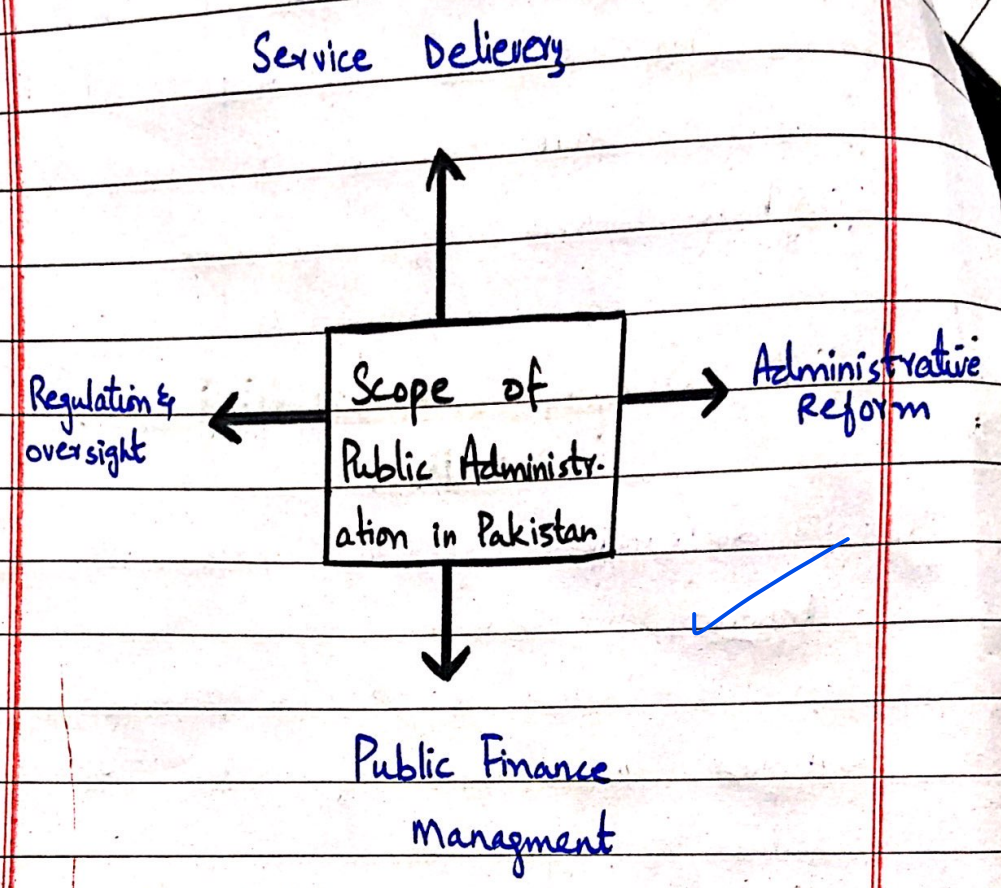 Service Delievery
Regulation &
oversight
Scope of
Public Administr-
ation in Pakistan.
Administrative
Reform
Public Finance
Managment